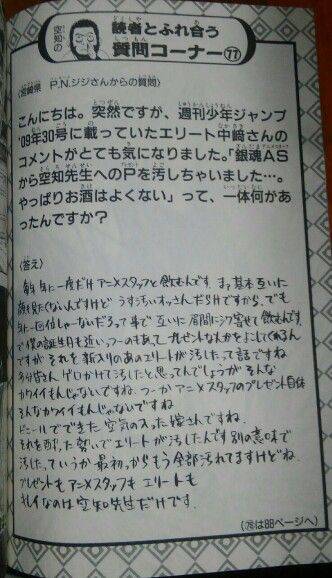 空知の
読者とふれ合う
質問コーナー77
〈宮崎県 P.N.ジジさんからの質問〉
こんにちは。突然ですが、週刊少年ジャンプ
'09年30号に載っていたエリート中﨑さんの
コメントがとても気になりました。「銀魂AS
から空知先生へのPを汚しちゃいました…。
やっぱりお酒はよくない」って、一体何があ
ったんですか？
〈答え〉
毎年年に一度だけアニメスタッフと飲むんです。まあ基本互いに
顔も見たくないんですけど うす汚いオッさんだらけですから。でも
年に一回位しゃーないだろって事で 互いに眉間にシワ寄せて飲むんです。
で 僕の誕生日も近いっつーのもあって プレゼントなんかをよこしてくるん
ですが それを新入りのあのエリートが汚したって話ですね
多分皆さん ゲロかけて汚したと思ってんでしょうが そんな
カワイイもんじゃないですね。つーか アニメスタッフのプレゼント自体
そんなカワイイもんじゃないですね
ビニールでできた 空気の入った嫁さんですね。
それを酔った勢いでエリートが汚したんです 別の意味で
汚した。ていうか 最初っからもう全部汚れてますけどね。
プレゼントも アニメスタッフも エリートも
キレイなのは空知先生だけです。
(78は88ページへ)